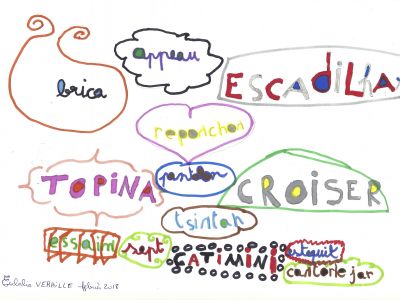 brica
appeau
ESCADILHA
reponchon
TOPINA
pantalon
CROISER
tsintah
essaim
sept
CATIMINI
cantorle jar
Eulalie VERAILLE février 2018